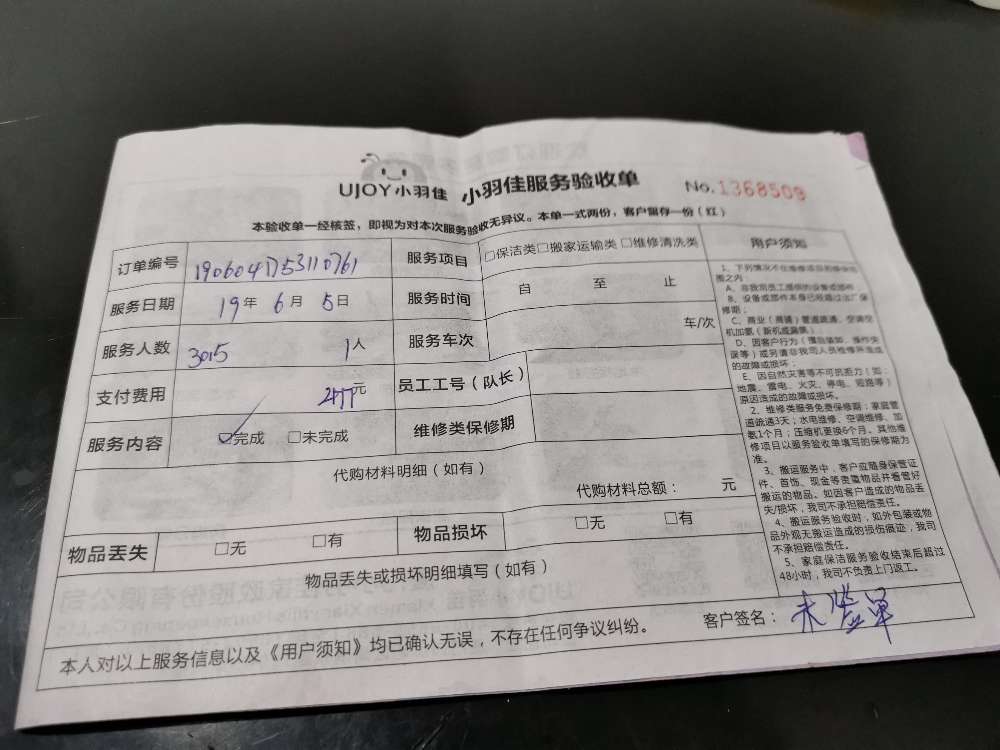 UJOY小羽佳 小羽佳服务验收单 No.1368509
本验收单一经核签，即视为对本次服务验收无异议。本单一式两份，客户留存一份（红）
订单编号 1906041753110761 服务项目 □保洁类□搬家运输类□维修清洗类
服务日期 19年 6月 5日 服务时间 自 至 止
服务人数 3015 1人 服务车次 车/次
支付费用 元 员工工号（队长）
服务内容 ☑完成 □未完成 维修类保修期
代购材料明细（如有）
代购材料总额： 元
物品丢失 □无 □有 物品损坏 □无 □有
物品丢失或损坏明细填写（如有）
本人对以上服务信息以及《用户须知》均已确认无误，不存在任何争议纠纷。 客户签名：未签单
用户须知
1、下列情况不在维修项目的保修范
围之内：
A、非我司员工提供的设备或部件
B、设备或部件本身已经超过出厂保
修期；
C、商业（商铺）管道疏通、空调空
机加氨（新机或漏氟）
D、因客户行为（擅自装卸、操作失
误等）或另请非我司人员检修所造成
的故障或损坏；
E、因自然灾害等不可抗拒力（如：
地震、雷电、火灾、停电、短路等）
原因造成的故障或损坏。
2、维修类服务免费保修期：家庭管
道疏通3天；水电维修、空调维修、加
氨1个月；压缩机更换6个月。其他维
修项目以服务验收单填写的保修期为
准。
3、搬运服务中，客户应随身保管证
件、首饰、现金等贵重物品并看管好
搬运的物品。如因客户造成的物品丢
失/损坏，我司不承担赔偿责任。
4、搬运服务验收时，如外包装或物
品外观无搬运造成的损伤痕迹，我司
不承担赔偿责任。
5、家庭保洁服务验收结束后超过
48小时，我司不负责上门返工。